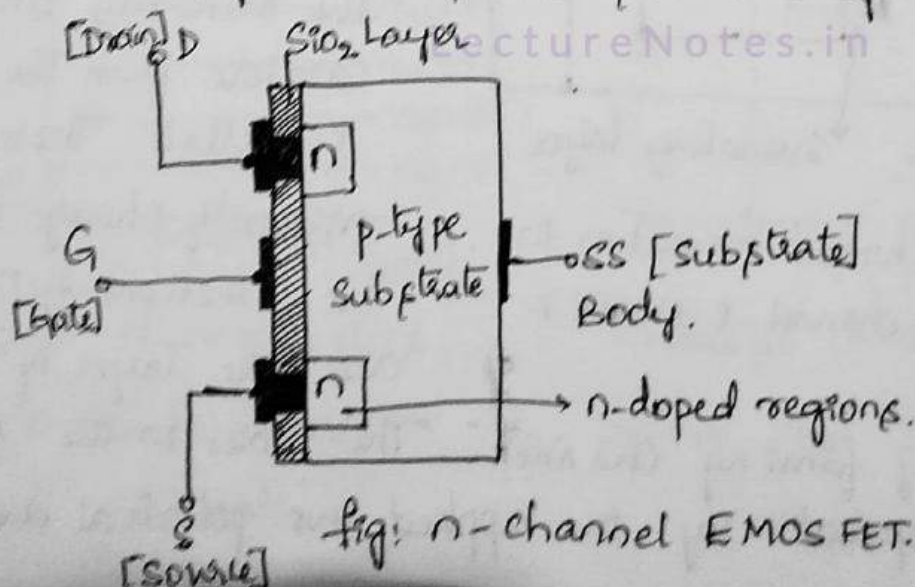 [Drain] D
SiO₂ Layer
LectureNotes.in
n
p-type
substrate
G
[Gate]
SS [Substrate]
Body.
n
n-doped regions.
S
[Source]
fig: n-channel EMOSFET.